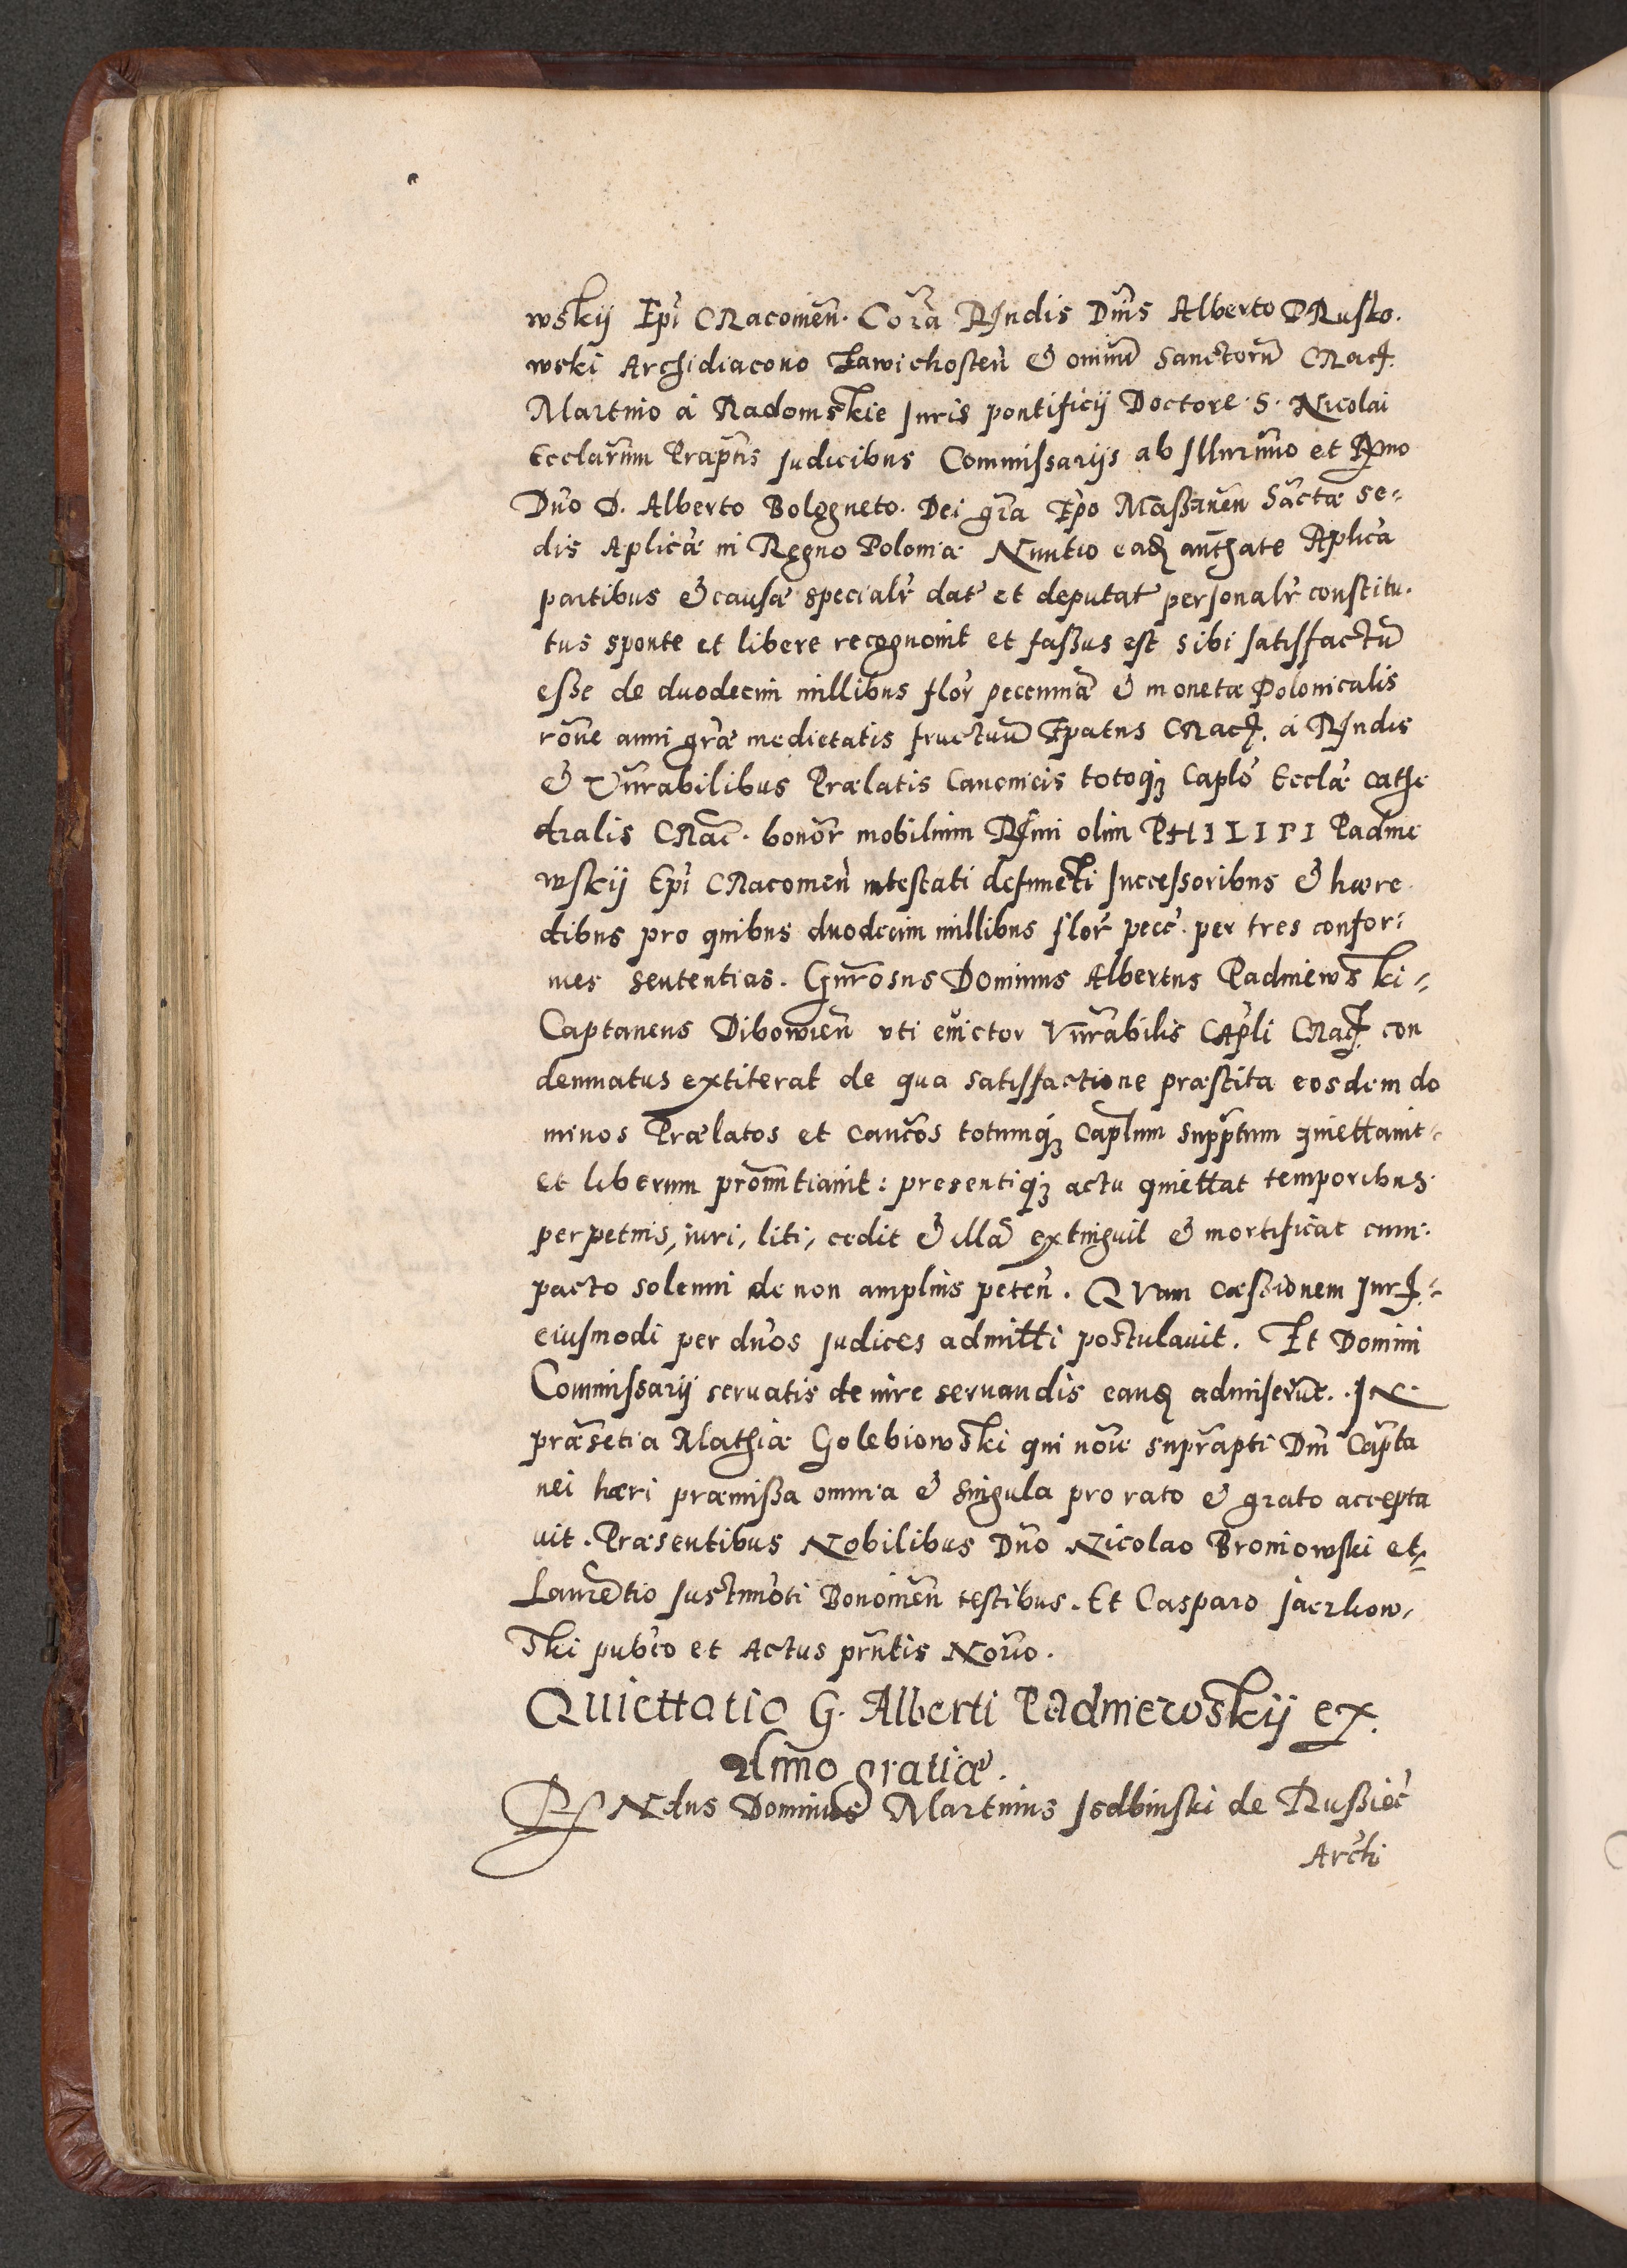 wskij Epi CRacouień. Cora͂ Rndis Dn͂is Alberto PRusko.
wski Archidiacono Zawichosteń & omniu͂ Sanctoru͂ CRac.
Martino á Radomskie Juris pontificij Doctore. S. Nicolai
Ecclar͂um Præp͂tis judicibus Commissarijs ab Illmi͂mo et R͂mo
Dn͂o D. Alberto Bologneto. Dei gr͂a Ep͂o Massanen͂ Sa͂ctæ se-
dis Aplic͂æ in Regno Poloniæ Nuntio eadꝫ aut͂hate Aplic͂a
partibus & causæ specialr͂ dat͂ et deputat͂ personalr͂ constitu.
tus sponte et libere recognouit et fassus est sibi satisfactu͂
esse de duodecim millibus flor͂ pecuniæ & monetæ Polonicalis
ro͂ne anni gr͂æ medietatis fructuu͂ Epatus CRac. á Rndis
& Vn͂rabilibus Prælatis Canonicis totoqꝫ Caplo͂ Eccl͂æ cathe
dralis CRac͂. bonor͂ mobilium R͂mi olim PHILIPI Padnie
wskij Epi͂ CRacouień intestati defuncti successoribus & hære
dibus pro quibus duodecim millibus flor͂ pecc͂. per tres confor-
mes sententias. Gn͂rosus Dominus Albertus Padniewski-
Captaneus Dibowień vti euictor Vn͂rabilis CApl͂i CRac. con
demnatus extiterat de qua satisfactione præstita eosdem do
minos Prælatos et can͂cos totumqꝫ Capl͂um supp͂tum quiettauit-
et liberum pro͂nntiauit: presentiqꝫ actu quiettat temporibus
perpetuis, iuri, liti, cedit & illa͂ extinguit & mortificat cum.
pacto solenni de non amplius peteń. QVam cæssionem Jur-
eiusmodi per dn͂os judices admitti postulauit. Et Domini
Commissarij seruatis de iure seruandis eandꝫ admiseru͂t. IN
præse͂tia Mathiæ Golebiowski qui no͂ie supr͂apti Dn͂i Cap͂ta
nei hæri præmissa omnia & singula pro rato & grato accepta
uit. Præsentibus Nobilibus Dn͂o Nicolao Broniowski et-
Laure͂tio Bonouień testibus. Et Casparo Jaerkow,
ski pub͂co et Actus prn͂tis Nor͂io.
QUiettatio G. Alberti PAdniewskij ex.
Anno gratiæ.
RNdus Dominus Martinus Isdbinski de Russieć
Archi